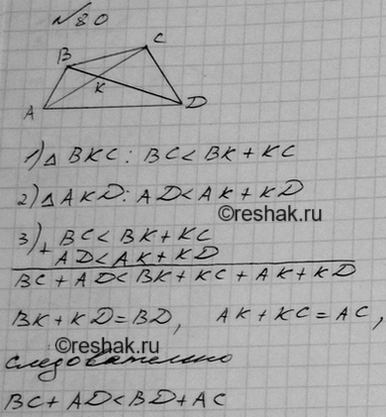 №80
B C
K
A D
1) △ BKC: BC < BK + KC
2) △ AKD: AD < AK + KD
©reshak.ru
3) + BC < BK + KC
AD < AK + KD
BC + AD < BK + KC + AK + KD
BK + KD = BD, AK + KC = AC,
©reshak.ru
следовательно
BC + AD < BD + AC